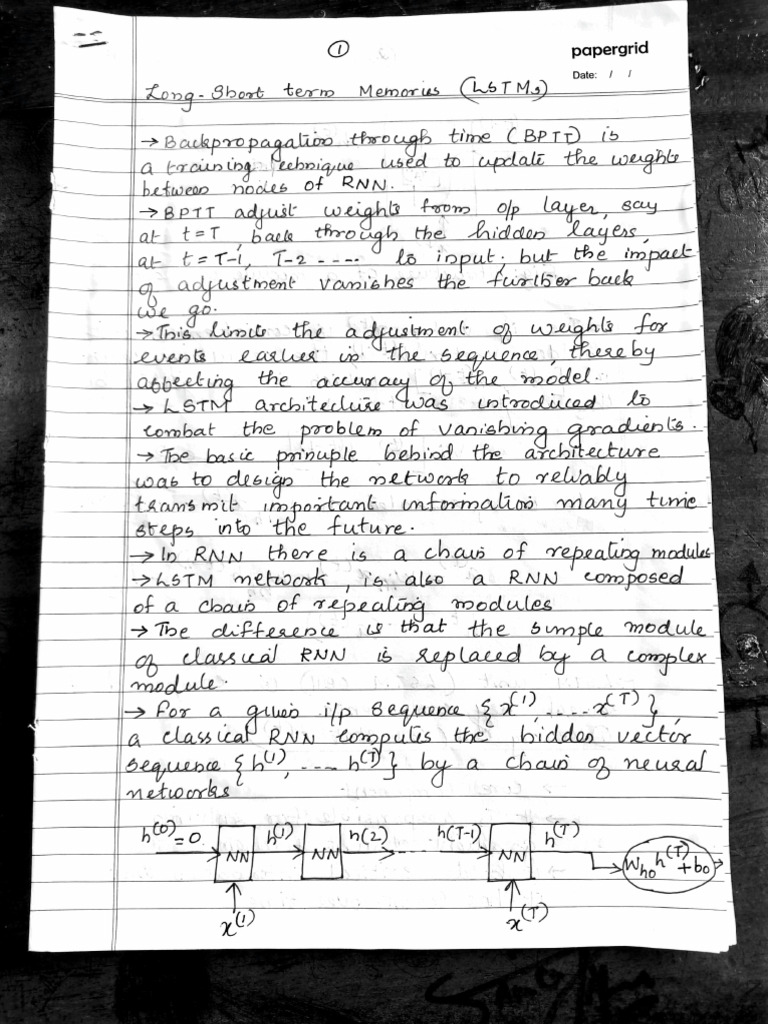 ①
papergrid
Date: / /
Long-Short term Memories (LSTMs)
→ Backpropagation through time (BPTT) is
a training technique used to update the weights
between nodes of RNN.
→ BPTT adjust weights from o/p layer, say
at t=T, back through the hidden layers,
at t=T-1, T-2 ----- to input; but the impact
of adjustment vanishes the further back
we go.
→ This limits the adjustment of weights for
events earlier in the sequence, thereby
affecting the accuracy of the model.
→ LSTM architecture was introduced to
combat the problem of vanishing gradients.
→ The basic principle behind the architecture
was to design the network to reliably
transmit important information many time
steps into the future.
→ In RNN there is a chain of repeating modules
→ LSTM network, is also a RNN composed
of a chain of repeating modules
→ The difference is that the simple module
of classical RNN is replaced by a complex
module.
→ For a given i/p sequence {x^(1), ..... x^(T)},
a classical RNN computes the hidden vector
sequence {h^(1), ---- h^(T)} by a chain of neural
networks
h^(0)=0 NN h^(1) NN h(2) ---- h(T-1) NN h^(T) W_ho h^(T) + b_o
x^(1) x^(T)